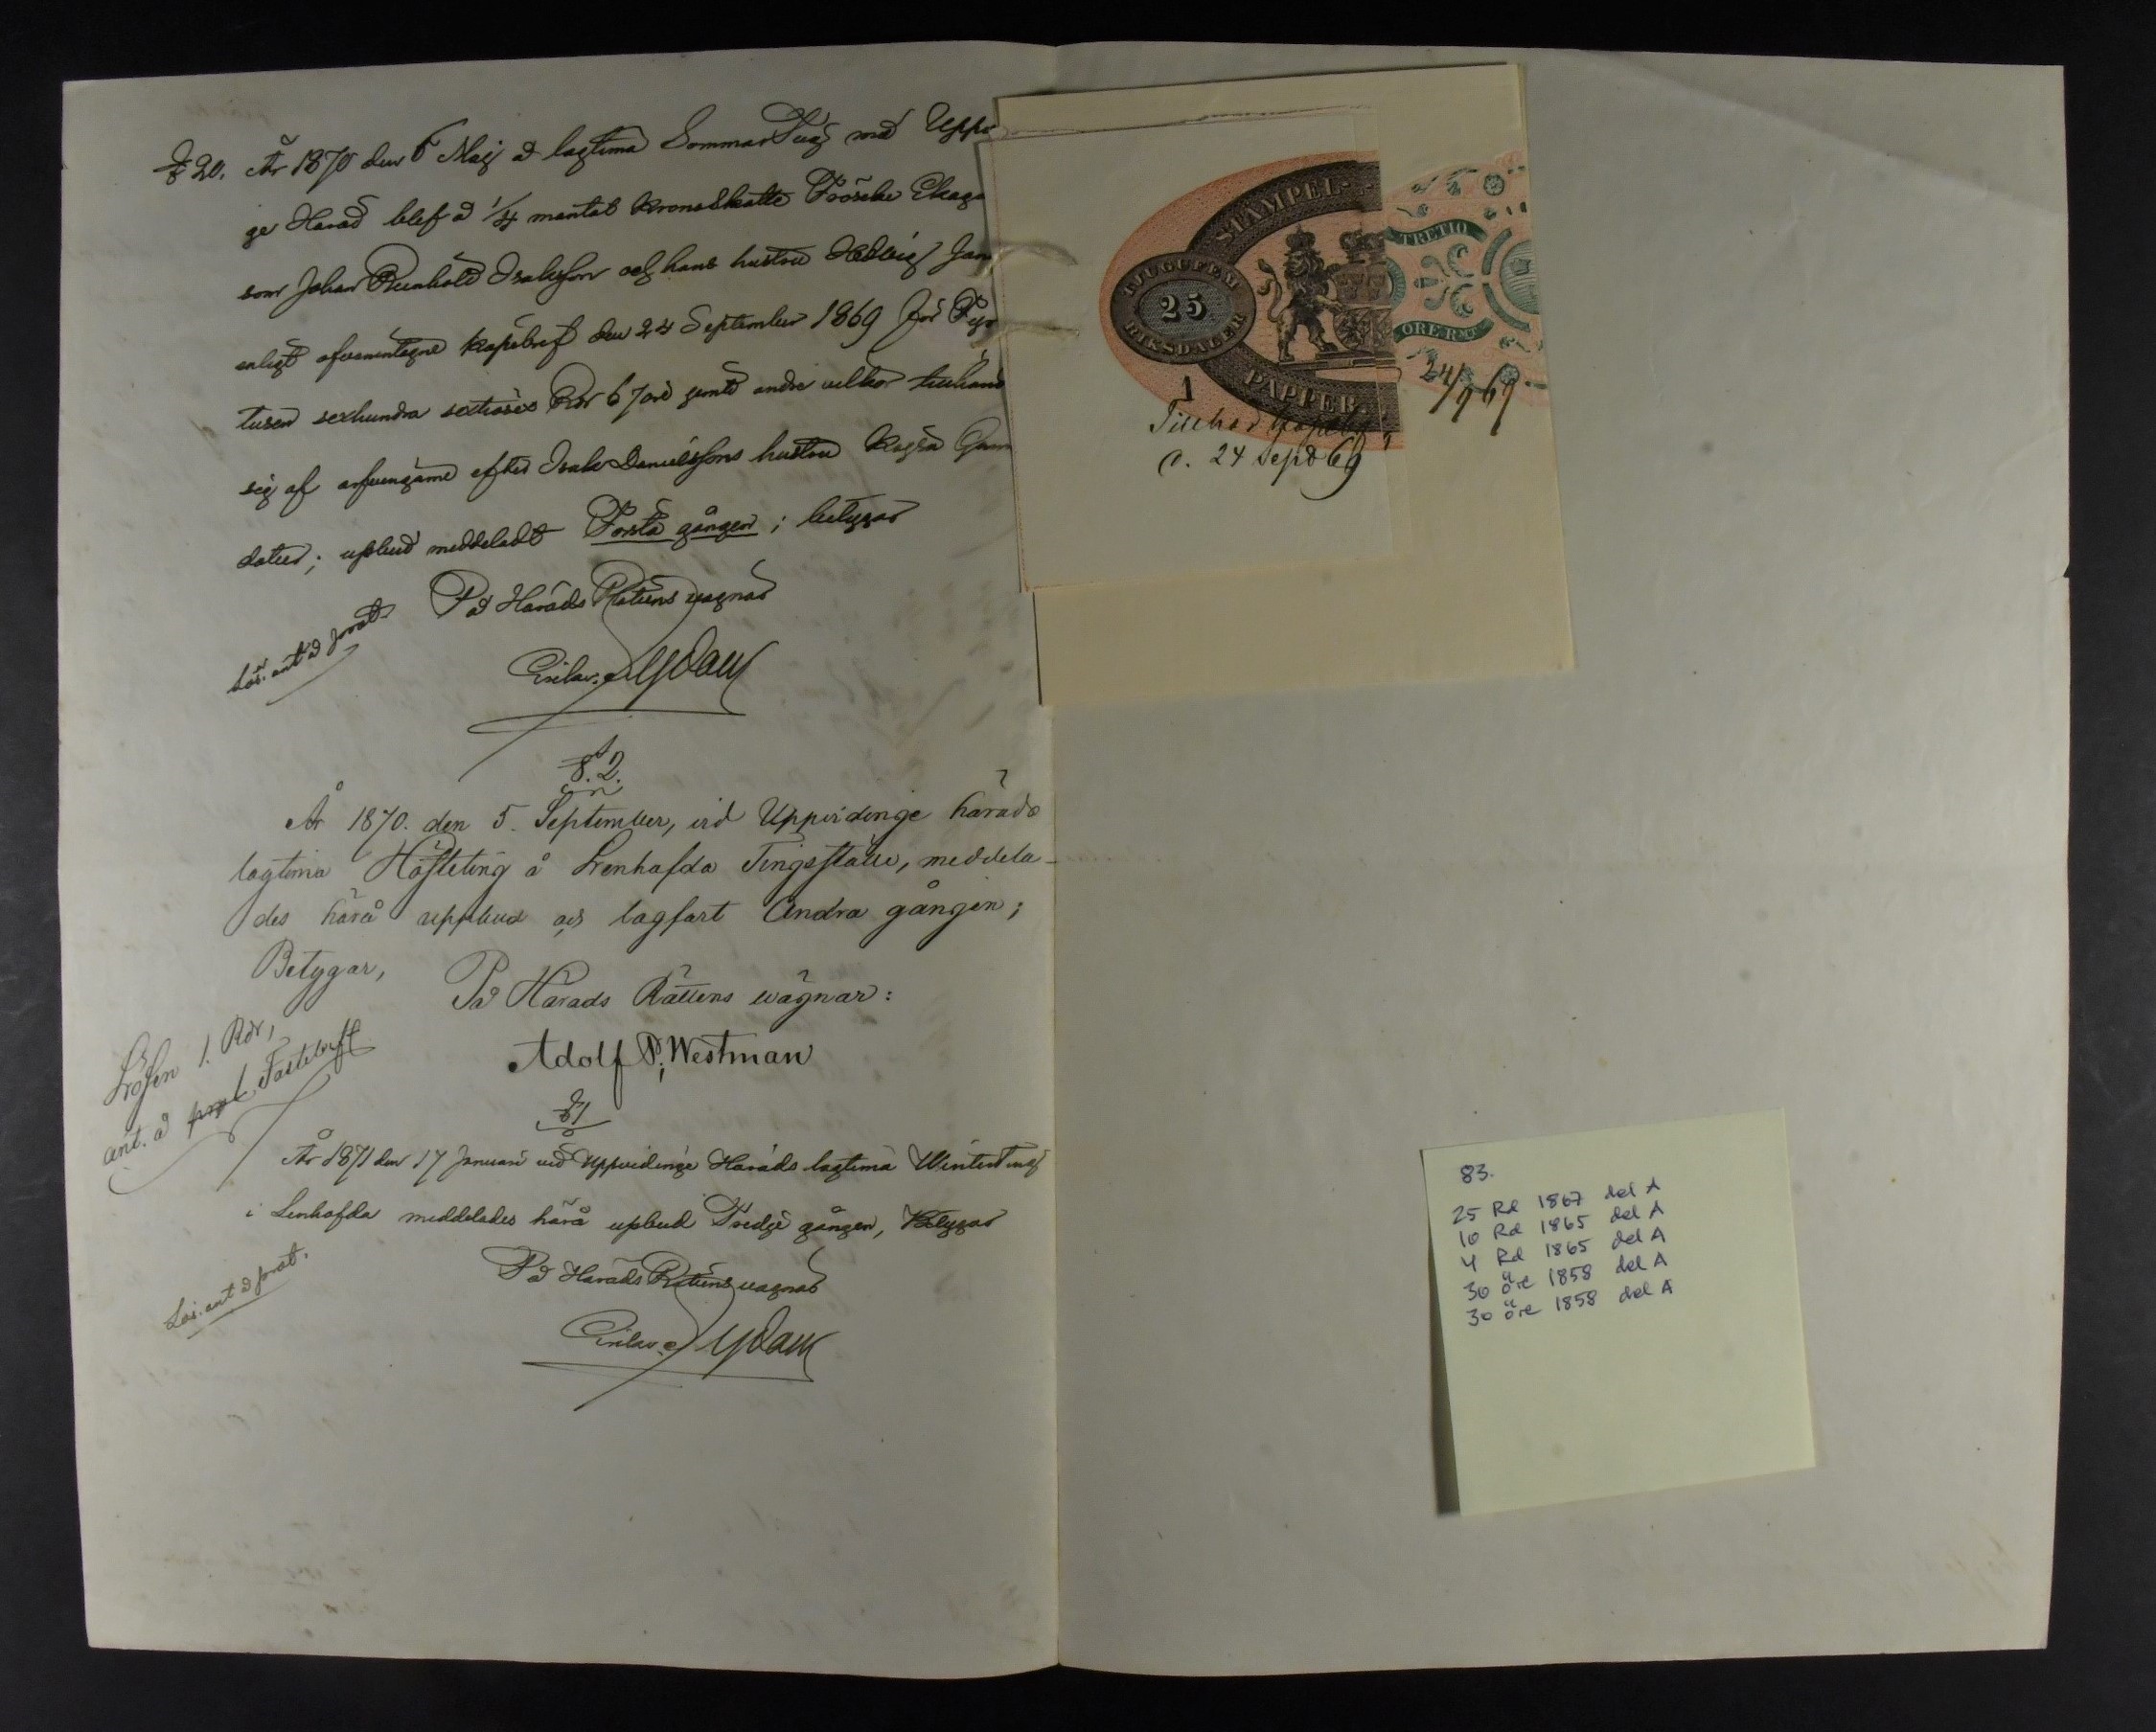 § 20. År 1870 den 6 Maj å lagtima Sommar Ting med Uppv
ge Härad blef å 1/4 mantal Krono Skatte Fröseke Ekag
som Johan Reinhold Isaksson och hans hustru Hedvig Jan
enligt ofvanintagne köpebref den 24 September 1869 för Fyr
tusen sexhundra sextiosex Rdr 67 öre jemte andre vilkor tillhand
sig af arfvingarne efter Isak Danielssons hustru Kajsa Gum
dotter; upbud meddeladt Första gången; betygar
På Härads Rättens vägnar
Lös. ant. å prot.
§. 2.
År 1870. den 5. September, vid Uppvidinge härads
lagtima Hösteting å Lenhofda Tingsställe, meddela-
des härå uppbud och lagfart Andra gången;
Betygar,
På Härads Rättens wägnar:
Adolf P. Westman
Lösen 1. Rdr,
ant. å Fastebref
§ 1
År 1871 den 17 Januari vid Uppvidinge Härads lagtima WinterTing
i Lenhofda meddelades härå upbud Tredje gången, Betygar
På Härads Rättens vägnar
Lös. ant. å prot.
STÄMPEL-
TJUGUFEM
25
RIKSDALER
PAPPER.
1
Tillköpebr
d. 24 Sept 69
TRETIO
ÖRE RMT
24/9 69
83.
25 Rd 1867 del A
10 Rd 1865 del A
4 Rd 1865 del A
30 öre 1858 del A
30 öre 1858 del A